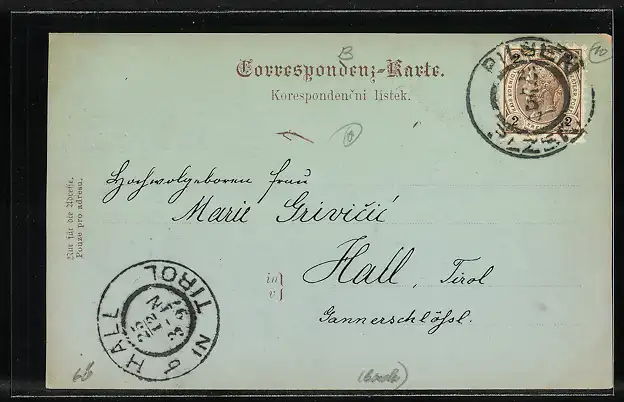 B
10
Correspondenz-Karte.
Korespondenční lístek.
PILSEN
PLZEŇ
2 2
Nur für die Adresse.
Pouze pro adresu.
Hochwolgeboren Frau
Marie Grivičić
in
v
Hall, Tirol
Gannerschlössl.
HALL IN TIROL